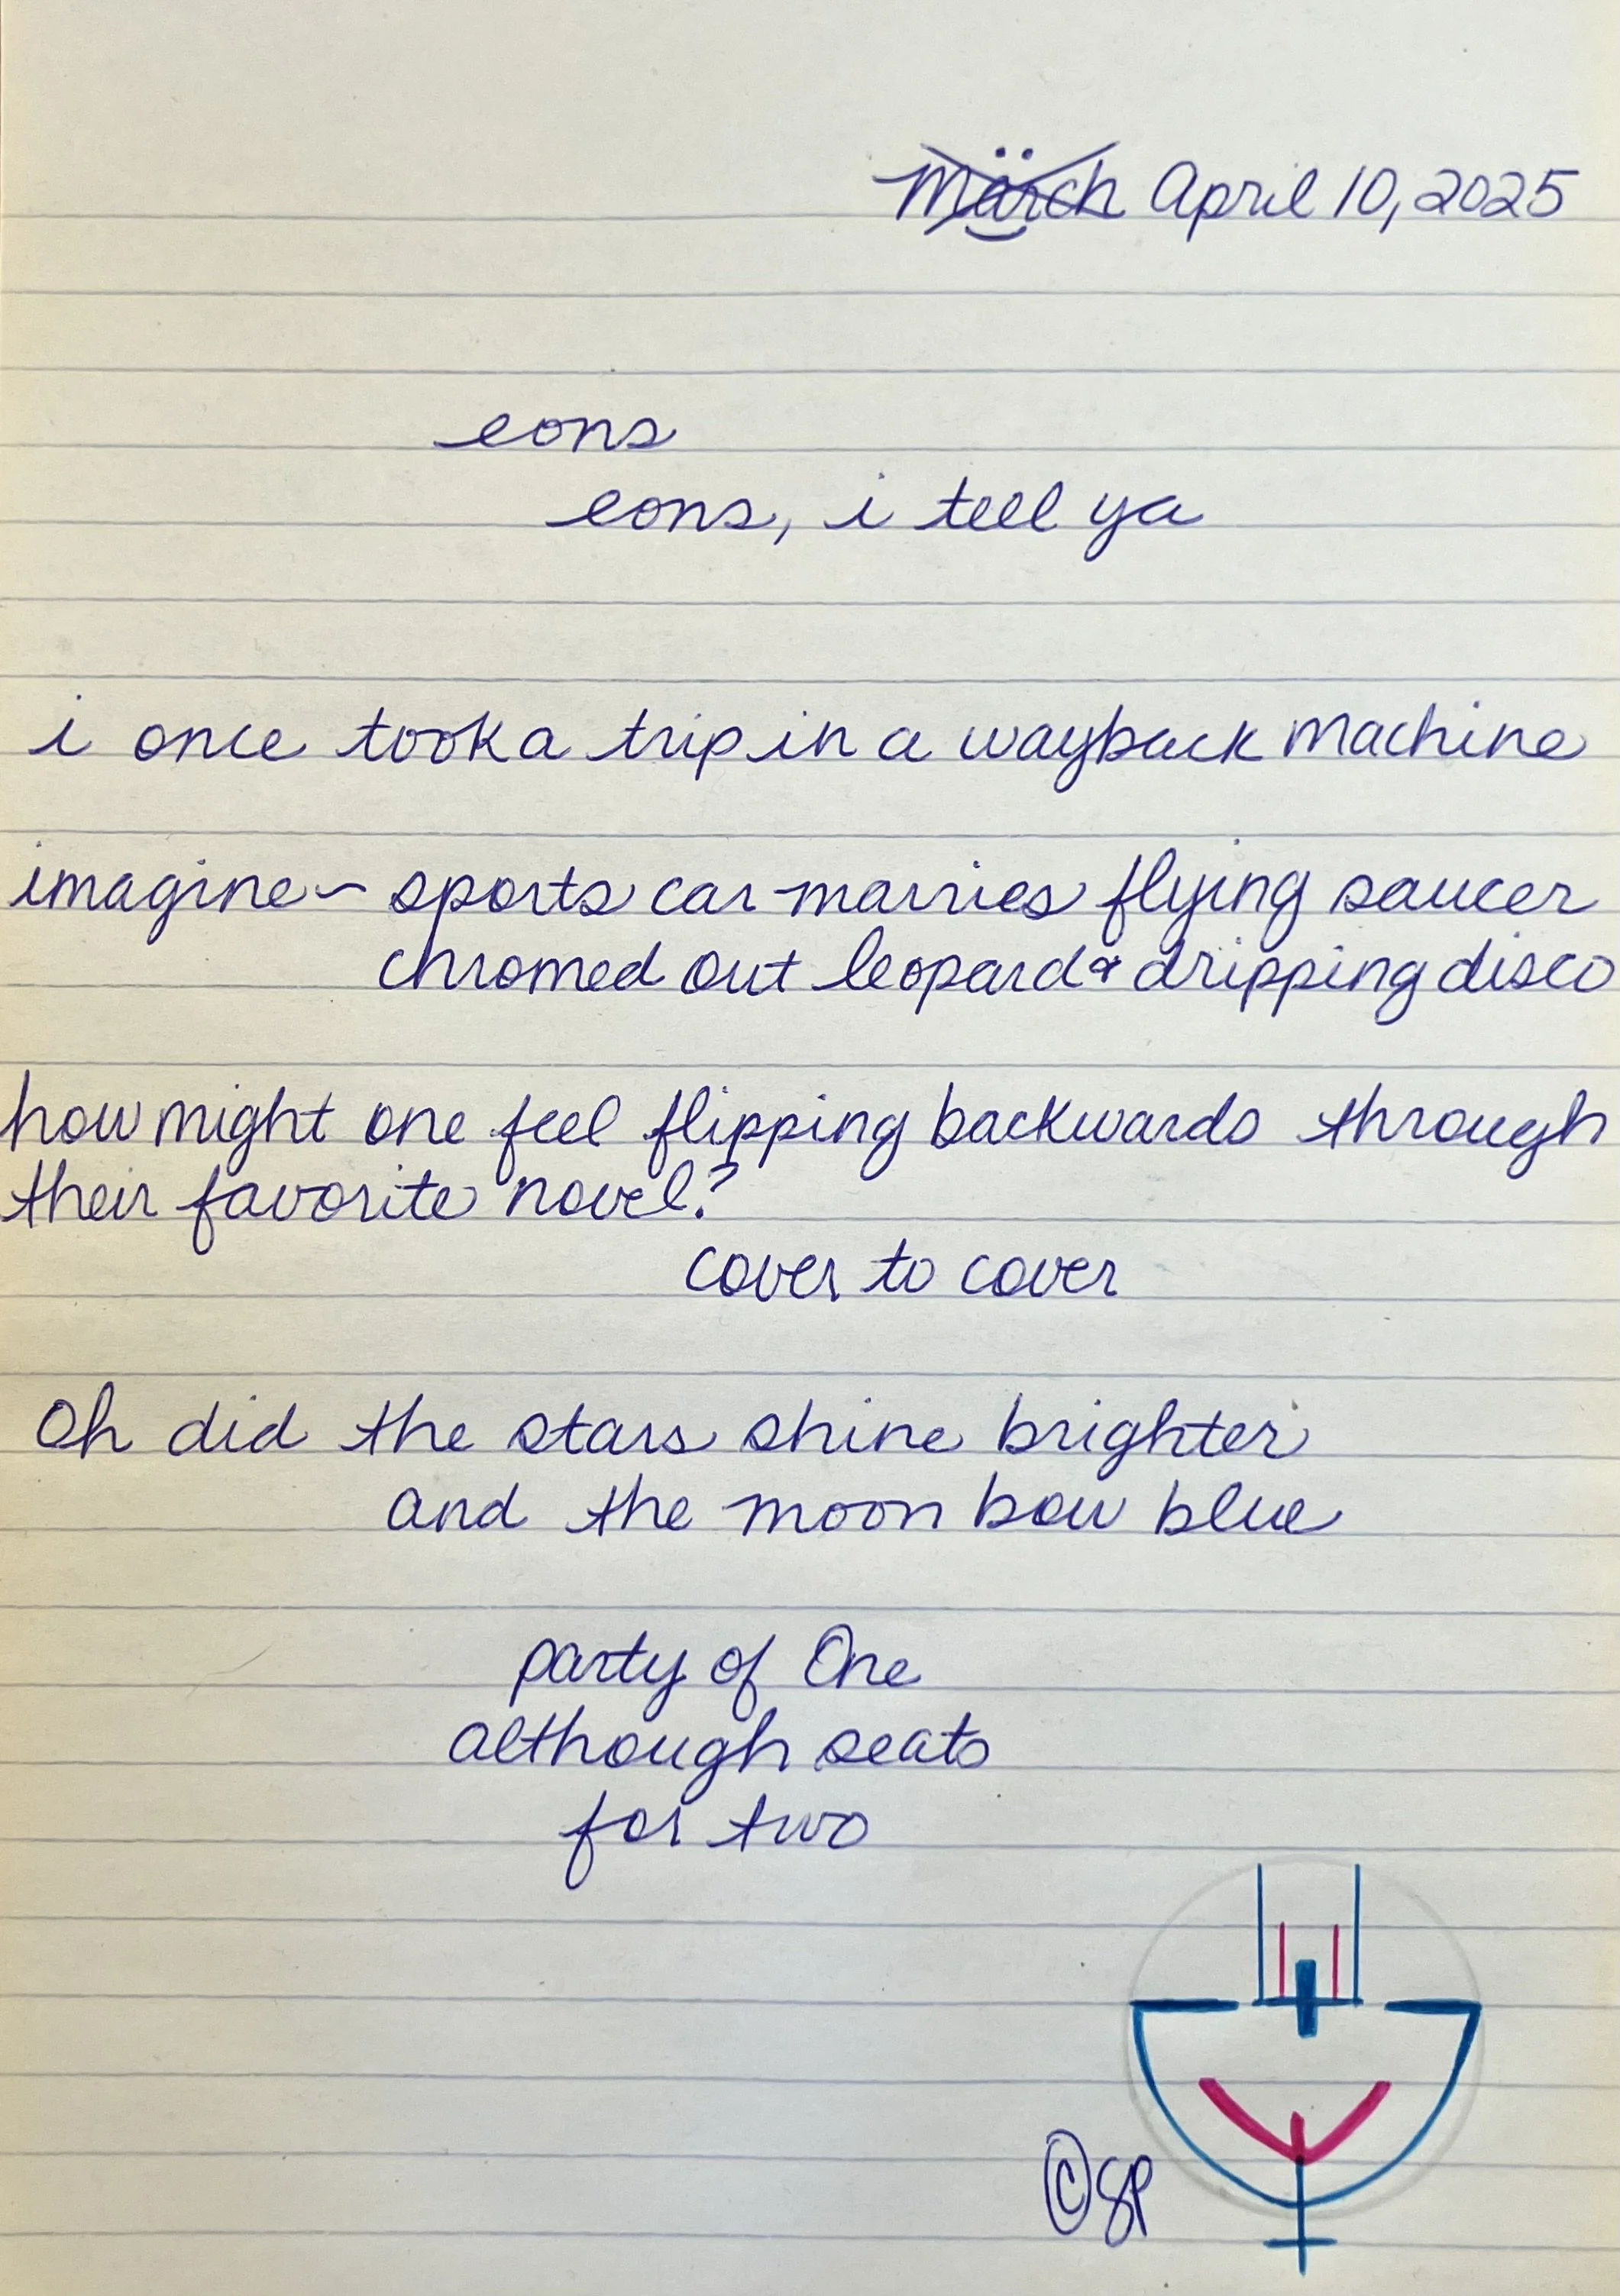 March April 10, 2025
eons
eons, i tell ya
i once took a trip in a wayback machine
imagine~ sports car marries flying saucer
chromed out leopard & dripping disco
how might one feel flipping backwards through
their favorite novel?
cover to cover
Oh did the stars shine brighter
and the moon bow blue
party of One
although seats
for two
©SP